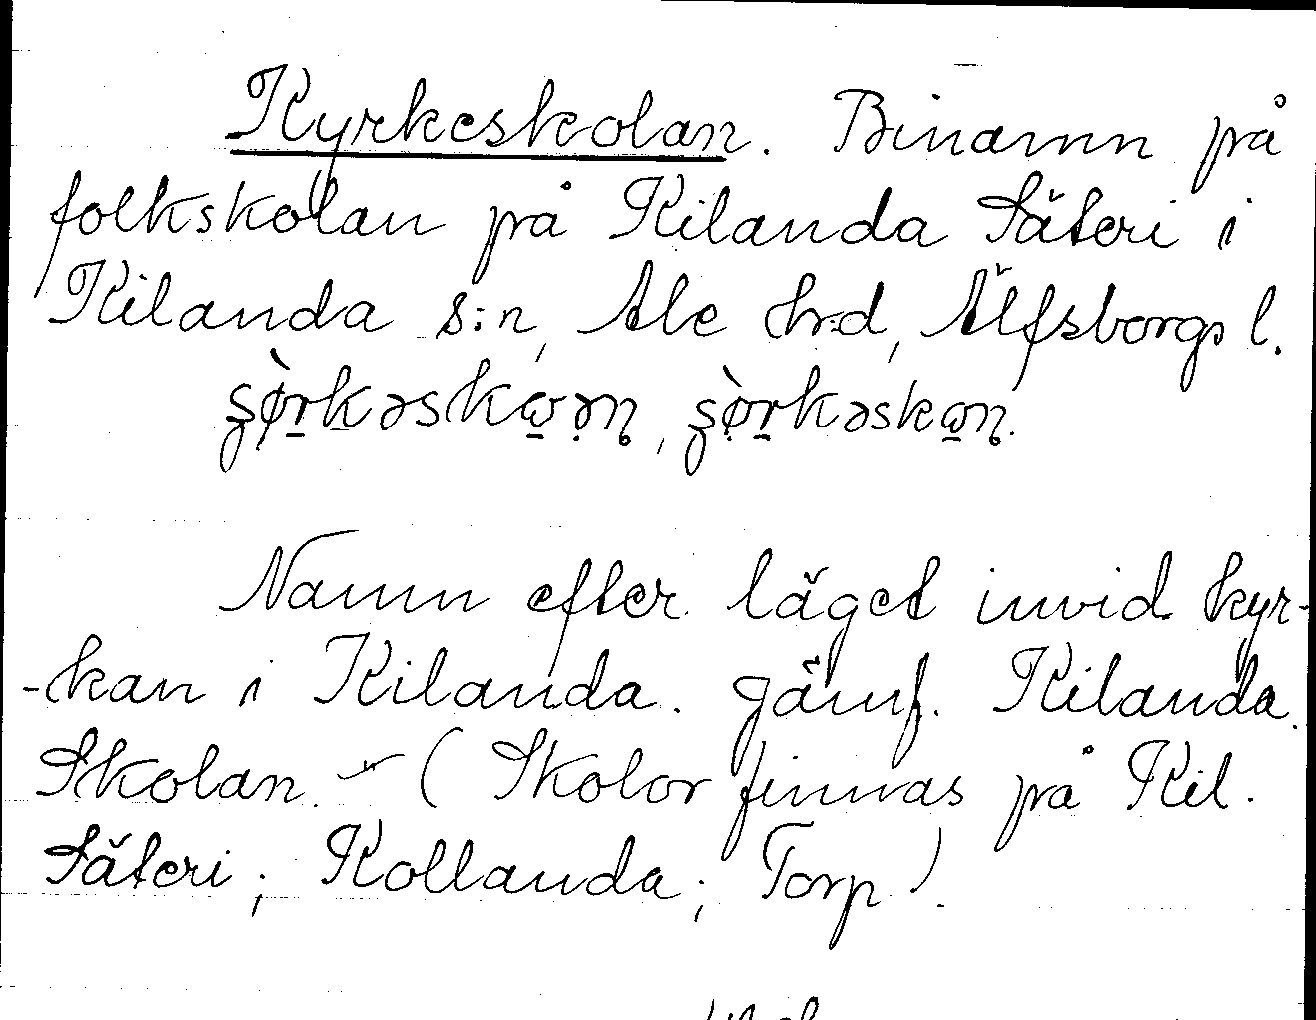 Kyrkeskolan. Binamn på
folkskolan på Kilanda Säteri i
Kilanda s:n, Ale hd, Älfsborgs l.
Namn efter läget invid kyr-
-kan i Kilanda. Jämf. Kilanda
Skolan. - (Skolor finnas på Kil.
Säteri; Kollanda; Torp).